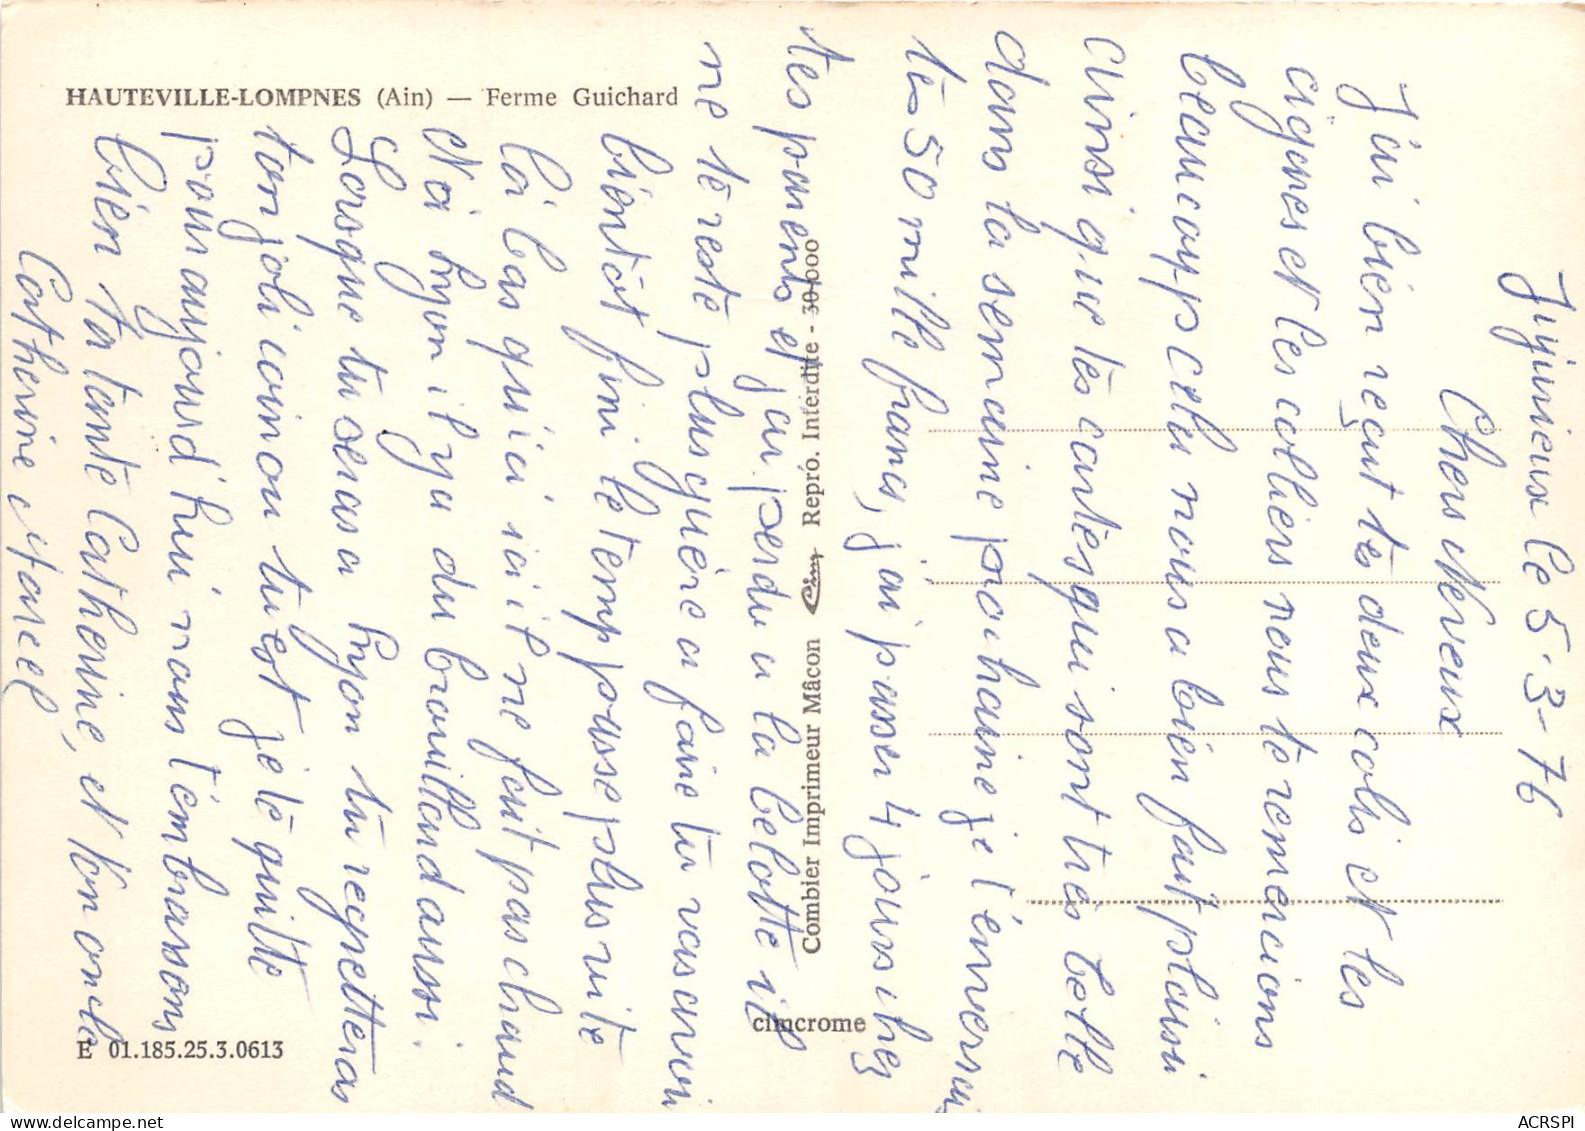 HAUTEVILLE-LOMPNES (Ain) — Ferme Guichard
Jujurieux le 5-3-76
Chers Neveux
J'ai bien reçut tes deux colis et les
cigares et les colliers nous te remercions
beaucoup cela nous a bien fait plaisir
ainsi que tes cartes qui sont très belle
dans la semaine prochaine je t'enverrai
tes 50 mille francs, j'ai passer 4 jours chez
tes parents et j'ai perdu a la belotte il
ne te reste plus guère a faire tu vas avoir
bientôt fini le temp passe plus vite
là bas qu'ici ici il ne fait pas chaud
A Lyon il y a du brouillard aussi.
Lorsque tu seras a Lyon tu regretteras
ton joli coin ou tu est je te quitte
pour aujourd'hui nous t'embrassons
bien ta tante Catherine, et ton oncle
Catherine Marcel,
Combier Imprimeur Mâcon Cim Repro. Interdite - 301000
cimcrome
E 01.185.25.3.0613
ACRSPI